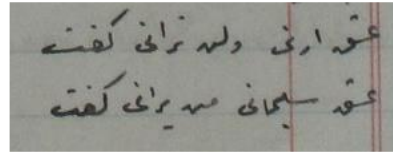 عشق ارنی ولن ترانی گفت
عشق سبحانی من یرانی گفت